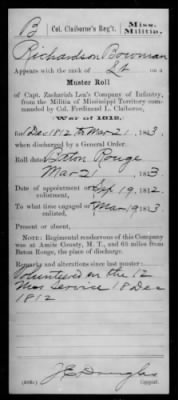 B | Col. Claiborne's Reg't. | Miss. Militia.
Richardson Bowman
Appears with the rank of Lt on a
Muster Roll
of Capt. Zachariah Lea's Company of Infantry,
from the Militia of Mississippi Territory com-
manded by Col. Ferdinand L. Claiborne,
War of 1812,
for Dec 1812 to Mar 21, 1813
when discharged by a General Order.
Roll dated Batton Rouge
Mar 21, 1813
Date of appointment or enlistment, Sep 19, 1812
To what time engaged or enlisted, Mar 19, 1813
Present or absent,
NOTE. Regimental rendezvous of this Company
was at Amite County, M. T., and 65 miles from
Baton Rouge, the place of discharge.
Remarks and alterations since last muster:
Volunteered in the 12
Mos Service 18 Dec
1812
J E Douglas
Copyist.